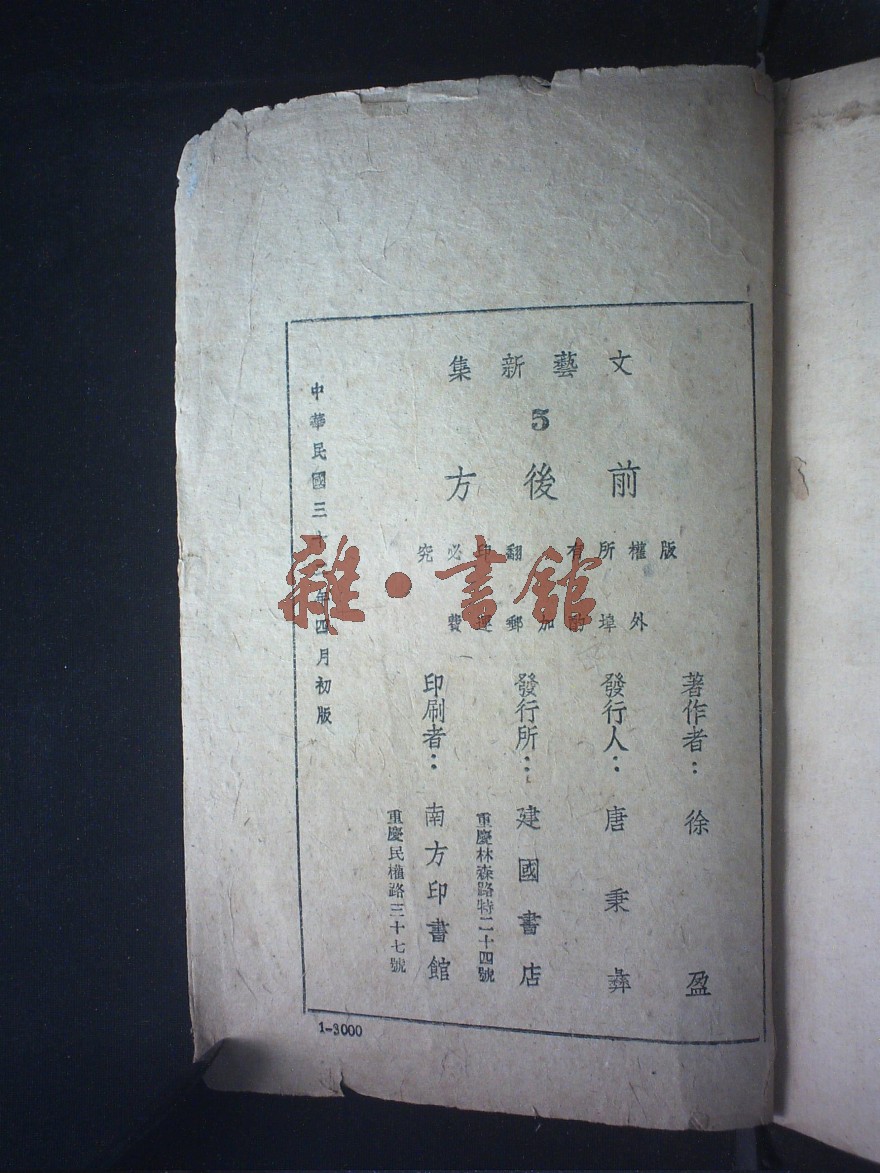 文藝新集
5
前後方
版權所有 翻印必究
外埠酌加郵運費
著作者：徐盈
發行人：唐秉彝
發行所：建國書店
重慶林森路特二十四號
印刷者：南方印書館
重慶民權路三十七號
中華民國三十 年四月初版
1-3000
雜·書館